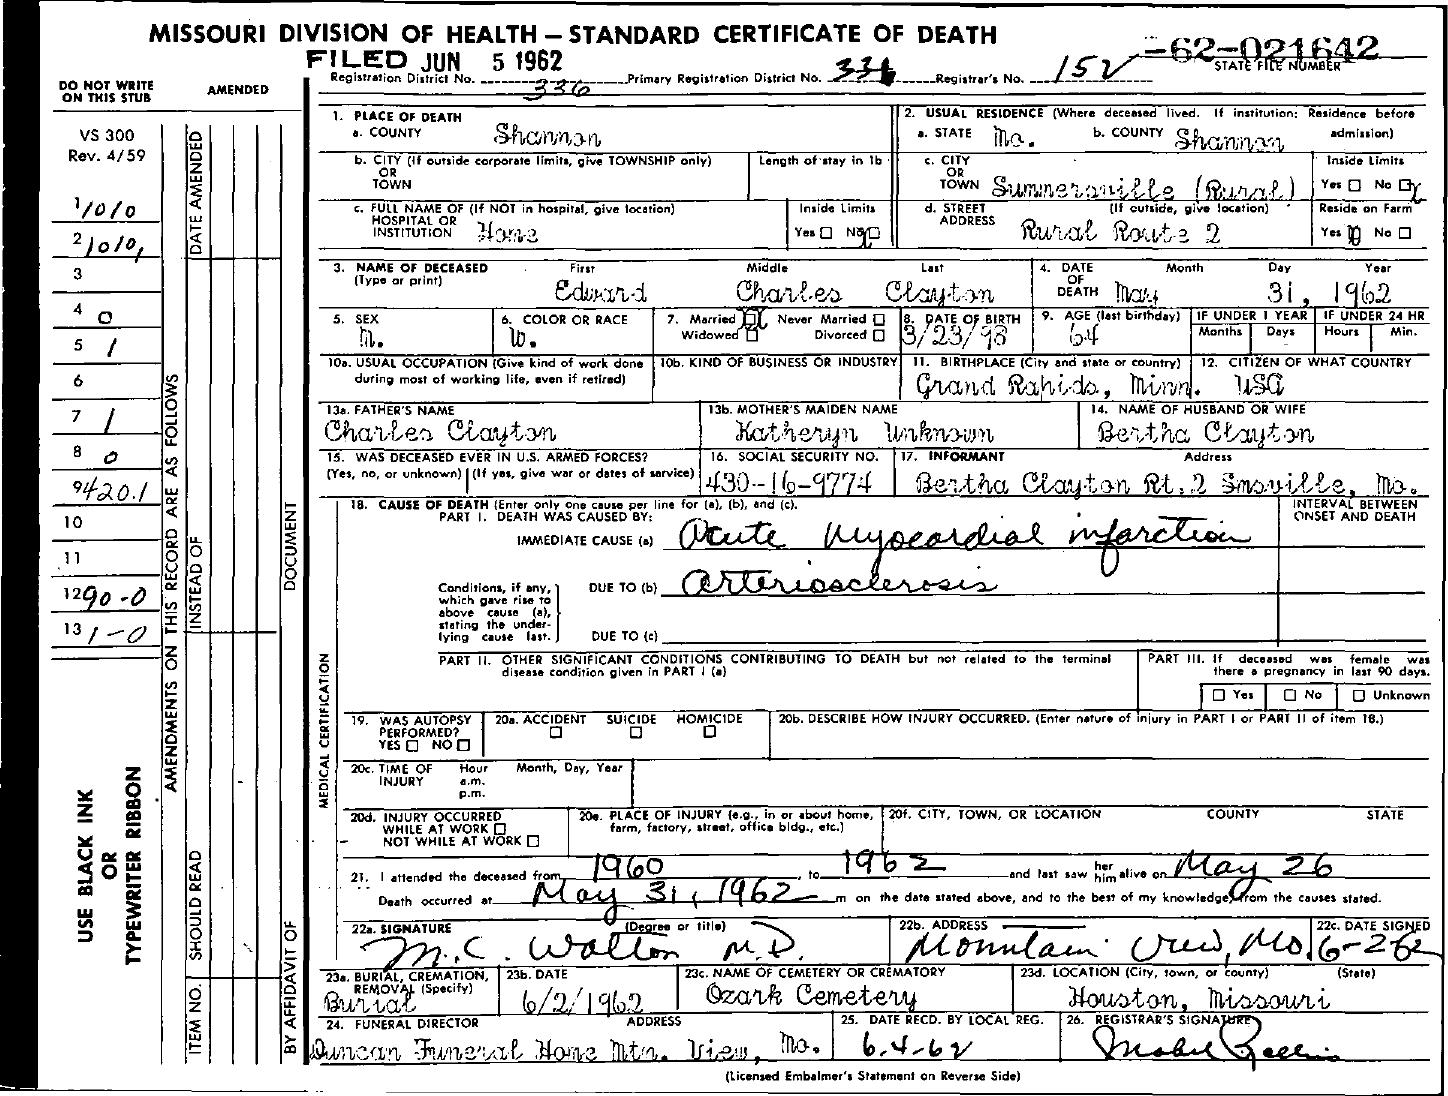 MISSOURI DIVISION OF HEALTH — STANDARD CERTIFICATE OF DEATH
-62-021642
STATE FILE NUMBER
FILED JUN 5 1962
Registration District No. 336 Primary Registration District No. 336 Registrar's No. 152
DO NOT WRITE
ON THIS STUB
AMENDED
VS 300
Rev. 4/59
1 1010
2 1010,
3
4 0
5 1
6
7 1
8 0
9 420.1
10
11
12 90-0
13 1-0
USE BLACK INK
OR
TYPEWRITER RIBBON
AMENDMENTS ON THIS RECORD ARE AS FOLLOWS
DATE AMENDED
INSTEAD OF
SHOULD READ
ITEM NO.
DOCUMENT
BY AFFIDAVIT OF
1. PLACE OF DEATH
a. COUNTY Shannon
b. CITY (If outside corporate limits, give TOWNSHIP only)
OR
TOWN
Length of stay in 1b
c. FULL NAME OF (If NOT in hospital, give location)
HOSPITAL OR
INSTITUTION Home
Inside Limits
Yes ☐ No ☒
2. USUAL RESIDENCE (Where deceased lived. If institution: Residence before
admission)
a. STATE Mo. b. COUNTY Shannon
c. CITY
OR
TOWN Summersville (Rural)
Inside Limits
Yes ☐ No ☒
d. STREET (If outside, give location)
ADDRESS Rural Route 2
Reside on Farm
Yes ☒ No ☐
3. NAME OF DECEASED First Middle Last
(Type or print) Edward Charles Clayton
4. DATE Month Day Year
OF
DEATH May 31, 1962
5. SEX
M.
6. COLOR OR RACE
W.
7. Married ☒ Never Married ☐
Widowed ☐ Divorced ☐
8. DATE OF BIRTH
3/23/98
9. AGE (last birthday)
64
IF UNDER 1 YEAR
Months Days
IF UNDER 24 HR
Hours Min.
10a. USUAL OCCUPATION (Give kind of work done
during most of working life, even if retired)
10b. KIND OF BUSINESS OR INDUSTRY
11. BIRTHPLACE (City and state or country)
Grand Rapids, Minn.
12. CITIZEN OF WHAT COUNTRY
USA
13a. FATHER'S NAME
Charles Clayton
13b. MOTHER'S MAIDEN NAME
Katheryn Unknown
14. NAME OF HUSBAND OR WIFE
Bertha Clayton
15. WAS DECEASED EVER IN U.S. ARMED FORCES?
(Yes, no, or unknown) (If yes, give war or dates of service)
16. SOCIAL SECURITY NO.
430-16-9774
17. INFORMANT Address
Bertha Clayton Rt. 2 Smsville, Mo.
MEDICAL CERTIFICATION
18. CAUSE OF DEATH (Enter only one cause per line for (a), (b), and (c).
PART I. DEATH WAS CAUSED BY:
INTERVAL BETWEEN
ONSET AND DEATH
IMMEDIATE CAUSE (a) Acute Myocardial infarction
Conditions, if any,
which gave rise to
above cause (a),
stating the under-
lying cause last.
DUE TO (b) Arteriosclerosis
DUE TO (c)
PART II. OTHER SIGNIFICANT CONDITIONS CONTRIBUTING TO DEATH but not related to the terminal
disease condition given in PART I (a)
PART III. If deceased was female was
there a pregnancy in last 90 days.
☐ Yes ☐ No ☐ Unknown
19. WAS AUTOPSY
PERFORMED?
YES ☐ NO ☐
20a. ACCIDENT SUICIDE HOMICIDE
☐ ☐ ☐
20b. DESCRIBE HOW INJURY OCCURRED. (Enter nature of injury in PART I or PART II of item 18.)
20c. TIME OF Hour Month, Day, Year
INJURY a.m.
p.m.
20d. INJURY OCCURRED
WHILE AT WORK ☐
NOT WHILE AT WORK ☐
20e. PLACE OF INJURY (e.g., in or about home,
farm, factory, street, office bldg., etc.)
20f. CITY, TOWN, OR LOCATION COUNTY STATE
21. I attended the deceased from 1960 to 1962 and last saw her him alive on May 26
Death occurred at May 31, 1962 m on the date stated above, and to the best of my knowledge, from the causes stated.
22a. SIGNATURE (Degree or title)
M.C. Walton M.D.
22b. ADDRESS
Mountain View, Mo.
22c. DATE SIGNED
6-2-62
23a. BURIAL, CREMATION,
REMOVAL (Specify)
Burial
23b. DATE
6/2/1962
23c. NAME OF CEMETERY OR CREMATORY
Ozark Cemetery
23d. LOCATION (City, town, or county) (State)
Houston, Missouri
24. FUNERAL DIRECTOR ADDRESS
Duncan Funeral Home Mtn. View, Mo.
25. DATE RECD. BY LOCAL REG.
6-4-62
26. REGISTRAR'S SIGNATURE
Mabel
(Licensed Embalmer's Statement on Reverse Side)